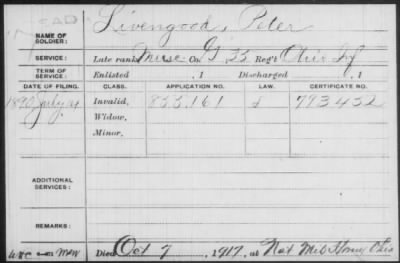 DEAD
NAME OF SOLDIER: Livengood, Peter
SERVICE: Late rank Musc Co. G, 33 Reg't Ohio Inf
TERM OF SERVICE: Enlisted , 1 Discharged , 1
DATE OF FILING. CLASS. APPLICATION NO. LAW. CERTIFICATE NO.
1890 July 21 Invalid, 833.161 793432
Widow,
Minor,
ADDITIONAL SERVICES:
REMARKS:
Died Oct 7, 1917, at Nat Mil Home, Ohio